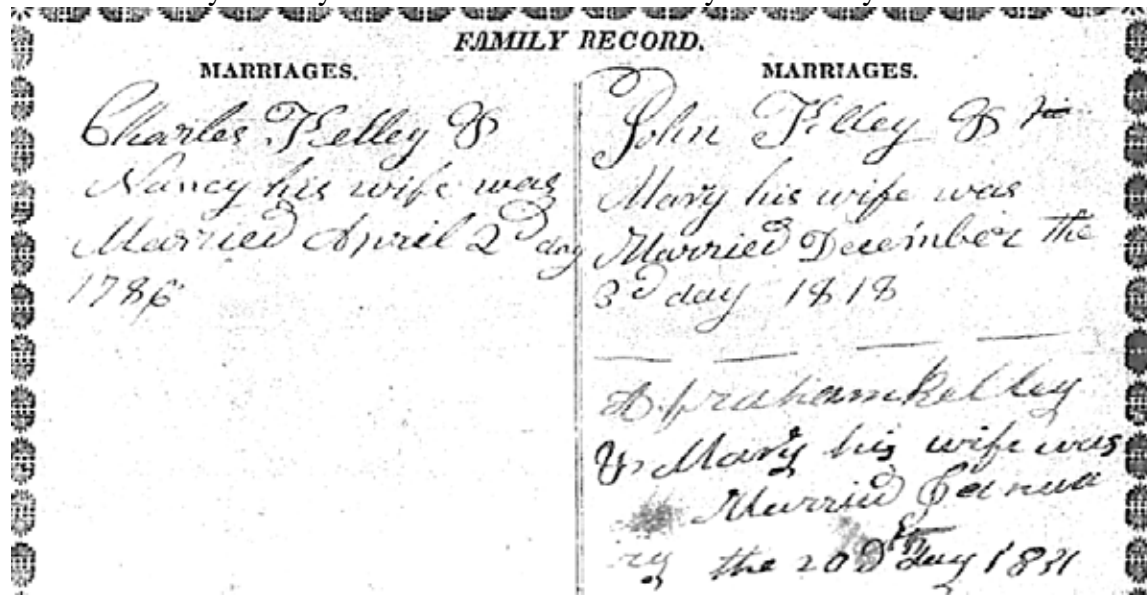 FAMILY RECORD.
MARRIAGES.
Charles Kelley &
Nancy his wife was
Married April 2d day
1786
MARRIAGES.
John Kelley &
Mary his wife was
Married December the
3d day 1818
Abraham Kelley
& Mary his wife was
Married Janua
ry the 20 day 1831